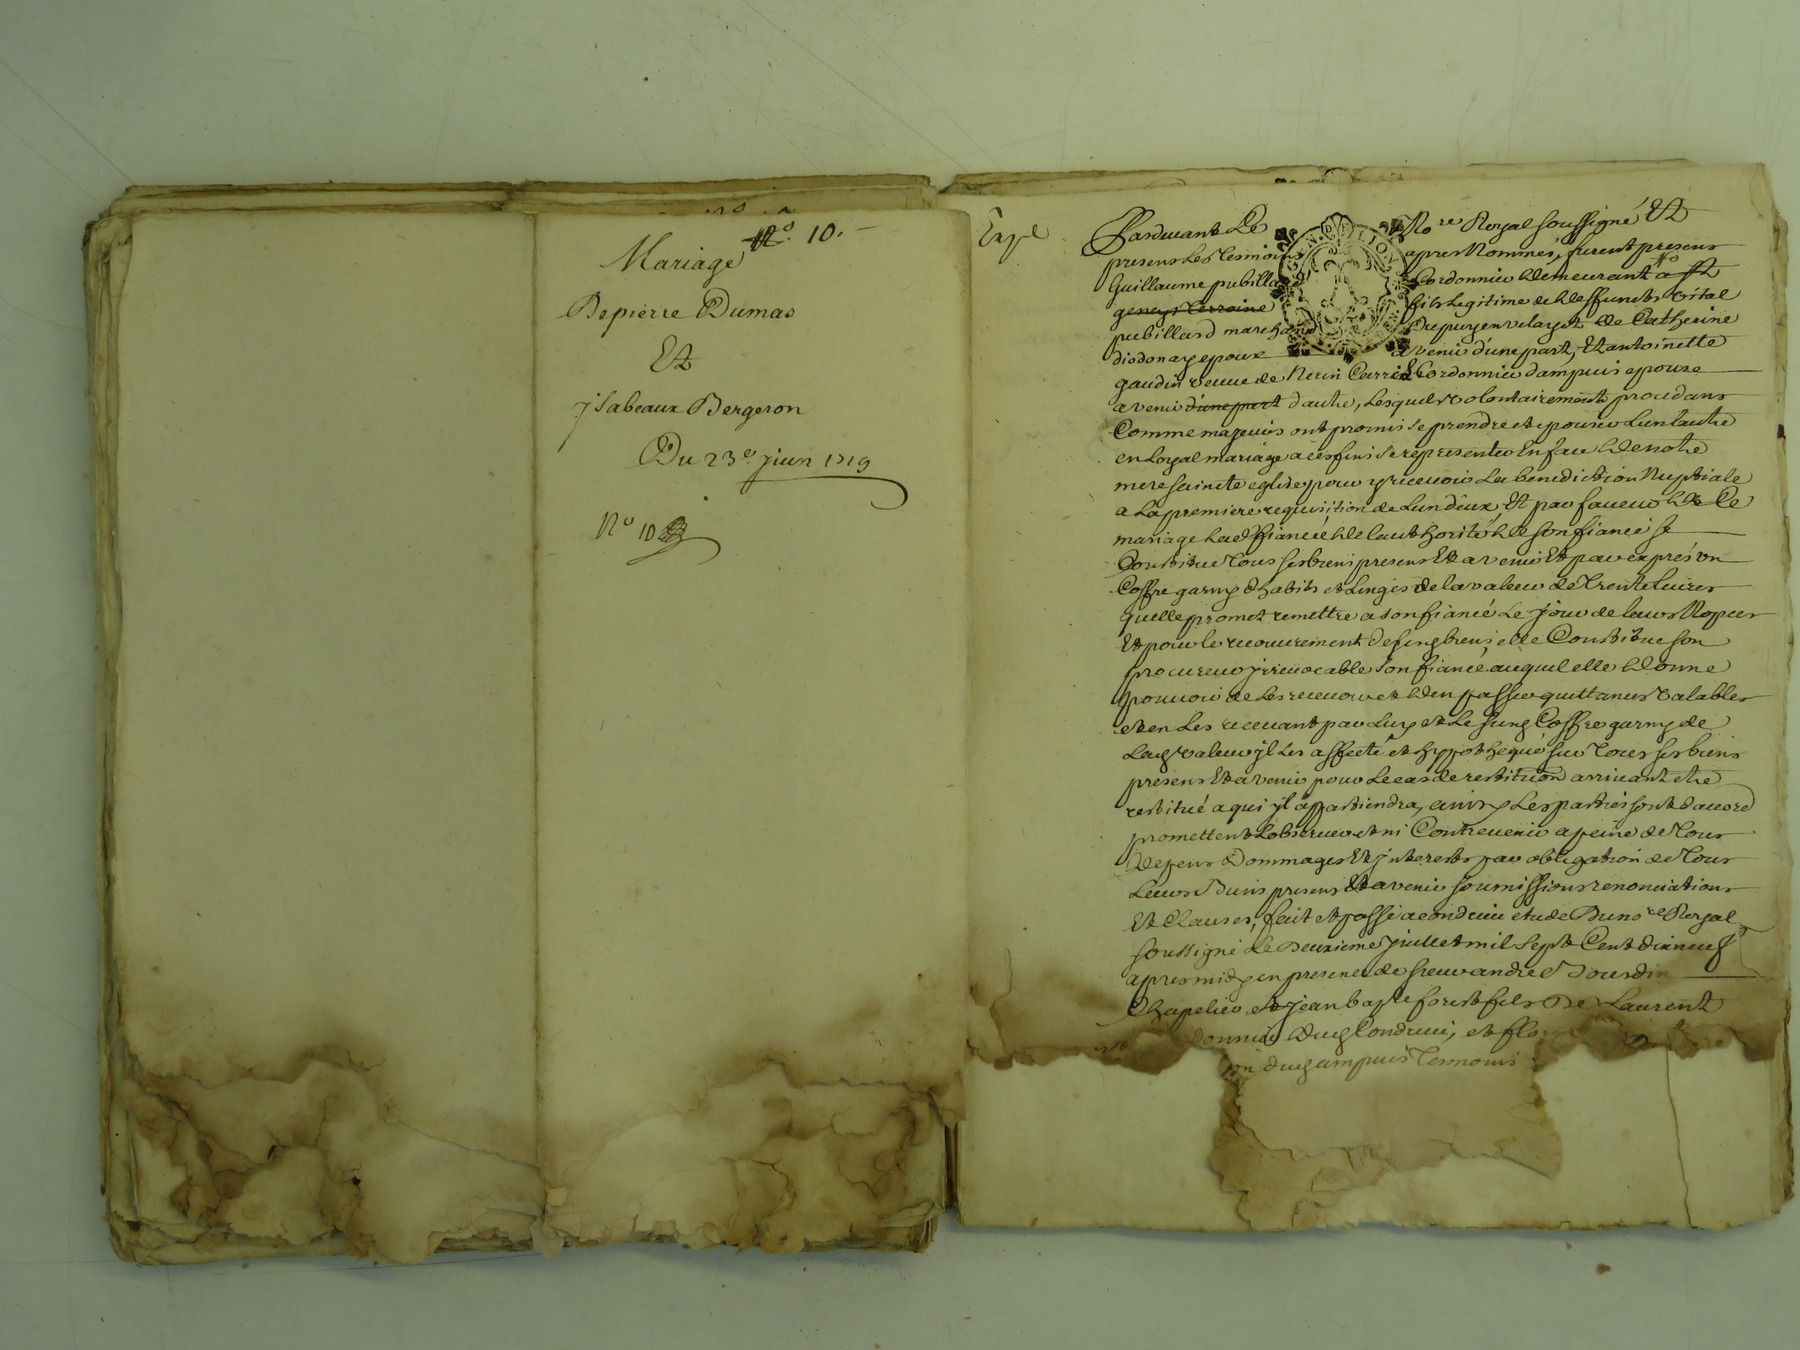 N.º 10.
Mariage
De pierre Dumas
Et
jsabeaux Bergeron
Du 23.e juin 1719
Nº 10
Expé
Pardevant Le No.re Royal soussigné Et
presens les Tesmoins apres Nommés, furent presens
Guillaume pubillard Cordonnier demeurant a st
geneys Terroire fils legitime de deffuncts vital
pubillard marchand Du puy en velay et de Catherine
diodonay epoux a venir d'une part, Et antoinette
gaudin veuve de Cordonnier dampuis epouse
a venir d'une part d'autre, Lesquels volontairement procedans
Comme majeurs ont promis se prendre et epouser L'un L'autre
en Loyal mariage a ces fins se representer En face de notre
mere saincte eglise pour y recevoir La benediction Nuptiale
a La premiere requisition de L'un deux, Et par faveur de Ce
mariage Lad fiancée de L'authorité de son fiancé se
Constitue Tous ses biens presens Et a venir Et par exprés un
Coffre garny d'habits et Linges de la valeur de Trente Livres
qu'elle promet remettre a son fiancé Le jour de leurs Nopces
Et pour le recouvrement de ses biens, elle Constitue son
procureur jrrevocable son fiancé auquel elle donne
pouvoir de Les recevoir et d'en passer quittances Valables
et en Les recevant par Luy et Le susd Coffre garny de
Lad valeur jl Les affecte et hypotheque sur Tous ses biens
presens Et a venir pour Le cas de restitution arrivant etre
restitué a qui jl appartiendra, ainsy Les parties sont d'accord
promettent L'observer et ni Contrevenir a peine de Tous
Depens Dommages Et jnterests par obligation de Tous
Leurs Biens presens Et a venir soumissions renonciations
Et Clauses, fait et passé a condrieu etude Du no.re Royal
soussigné Le Deuxieme juillet mil sept Cent dixneuf
apres midy en presence de sieur andre Jourdin
Chapelier et jean bap.te forest fils De Laurent
donnier dud Condrieu, et
dud ampuis Tesmoins